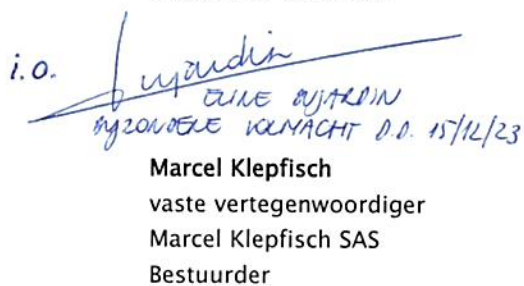 i.o. Dujardin
ELINE DUJARDIN
BIJZONDERE VOLMACHT D.D. 15/12/23
Marcel Klepfisch
vaste vertegenwoordiger
Marcel Klepfisch SAS
Bestuurder